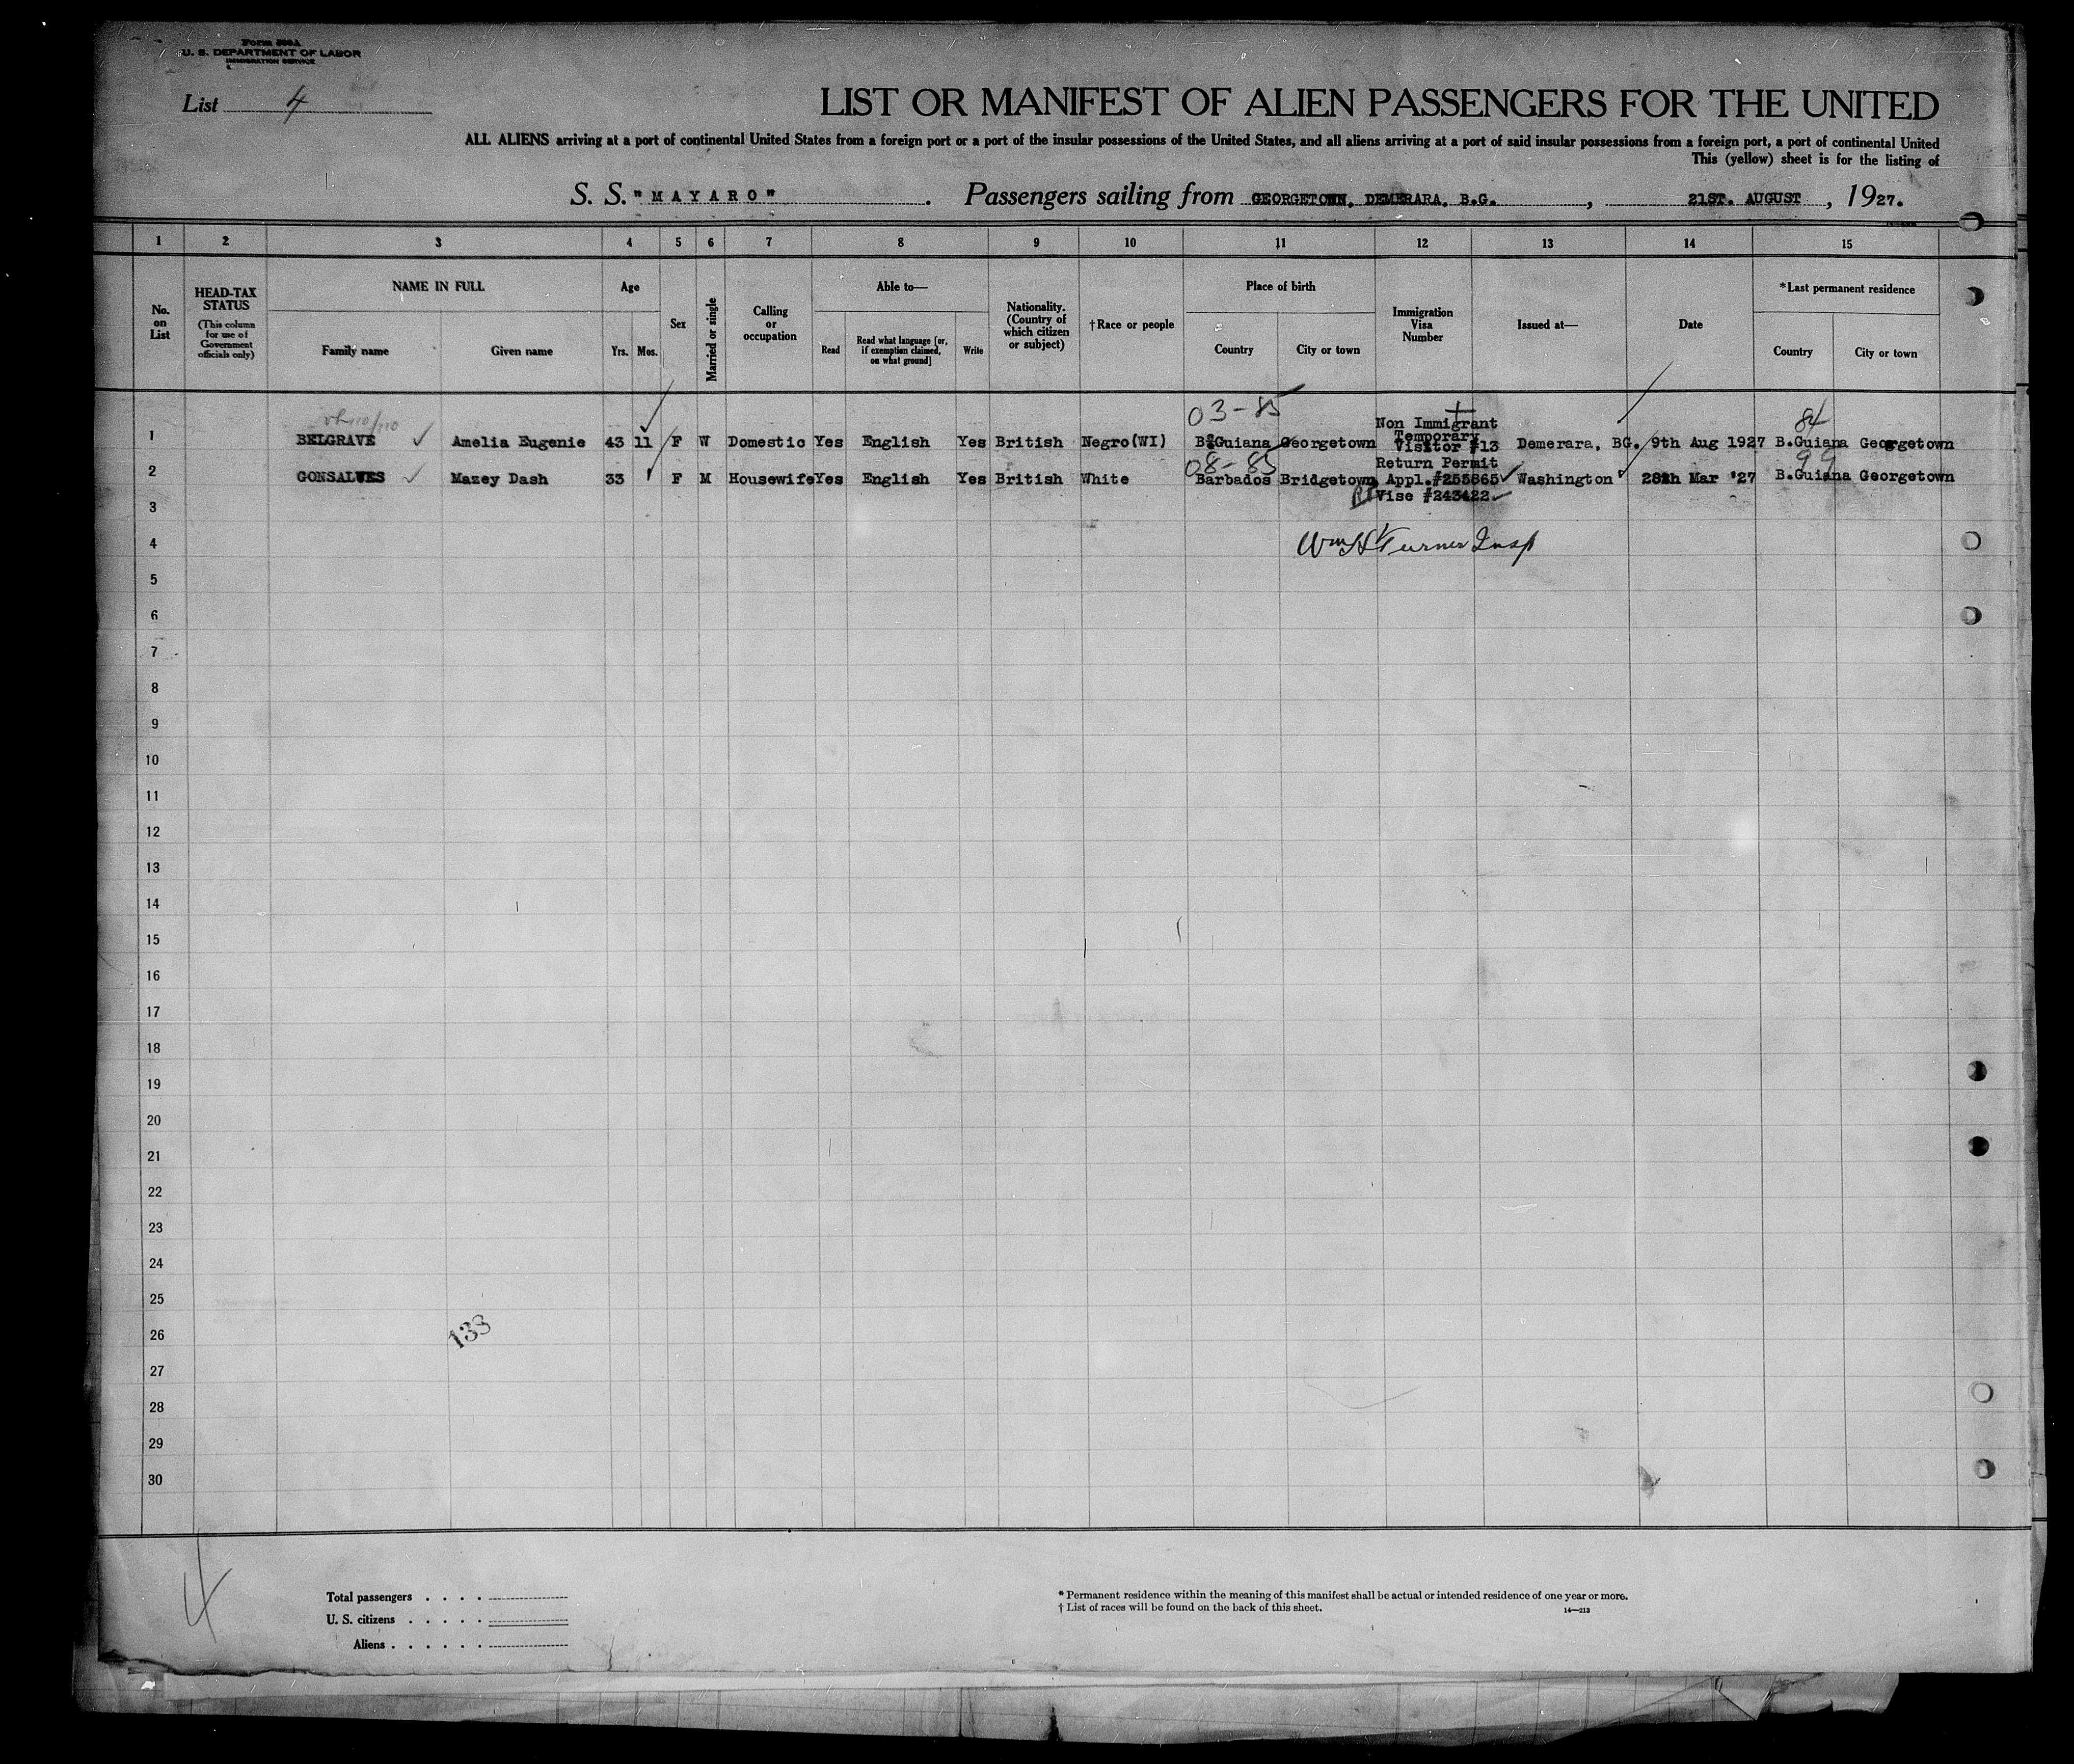 Form 500 A
U. S. DEPARTMENT OF LABOR
IMMIGRATION SERVICE
List 4
LIST OR MANIFEST OF ALIEN PASSENGERS FOR THE UNITED
ALL ALIENS arriving at a port of continental United States from a foreign port or a port of the insular possessions of the United States, and all aliens arriving at a port of said insular possessions from a foreign port, a port of continental United
This (yellow) sheet is for the listing of
S. S. "MAYARO". Passengers sailing from GEORGETOWN, DEMERARA, B.G., 21ST. AUGUST, 1927.
1 2 3 4 5 6 7 8 9 10 11 12 13 14 15
No. on List
HEAD-TAX STATUS (This column for use of Government officials only)
NAME IN FULL
Family name Given name
Age
Yrs. Mos.
Sex
Married or single
Calling or occupation
Able to—
Read Read what language [or, if exemption claimed, on what ground] Write
Nationality. (Country of which citizen or subject)
†Race or people
Place of birth
Country City or town
Immigration Visa Number
Issued at—
Date
*Last permanent residence
Country City or town
03-85 84
Non Immigrant
Temporary
1 BELGRAVE Amelia Eugenie 43 11 F W Domestic Yes English Yes British Negro(WI) B.Guiana Georgetown Visitor #13 Demerara, BG. 9th Aug 1927 B.Guiana Georgetown
08-85 Return Permit 99
2 GONSALVES Mazey Dash 33 F M Housewife Yes English Yes British White Barbados Bridgetown Appl.#255865 Washington 28th Mar '27 B.Guiana Georgetown
3 Vise #243422
4 Wm H Turner Insp
5
6
7
8
9
10
11
12
13
14
15
16
17
18
19
20
21
22
23
24
25
26 133
27
28
29
30
4
Total passengers . . . .
U. S. citizens . . . . .
Aliens . . . . . .
* Permanent residence within the meaning of this manifest shall be actual or intended residence of one year or more.
† List of races will be found on the back of this sheet. 14—213